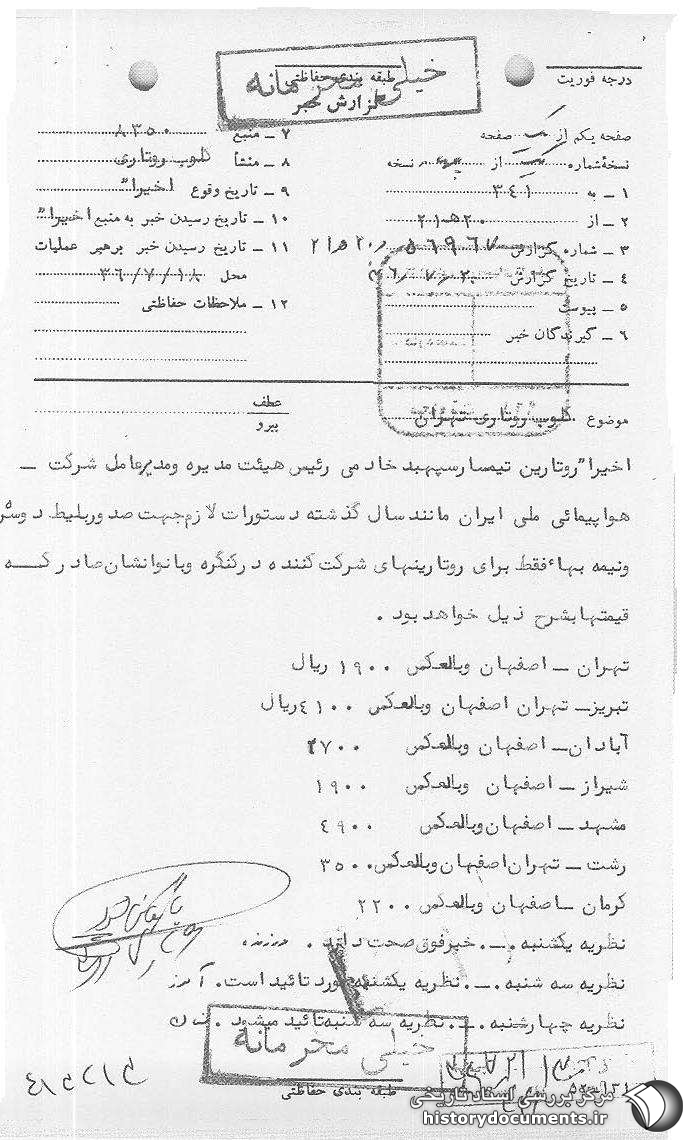 خیلی محرمانه
طبقه بندی حفاظتی
گزارش خبر
درجه فوریت
صفحه یکم از یک صفحه
نسخهٔ شماره از نسخه
۱ ـ به ۳۴۱
۲ ـ از ۲۰ ه ۲۱
۳ ـ شماره گزارش
۴ ـ تاریخ گزارش
۵ ـ پیوست
۶ ـ گیرندگان خبر
۷ ـ منبع ۸۳۵۰
۸ ـ منشأ کلوپ روتاری
۹ ـ تاریخ وقوع اخیراً
۱۰ ـ تاریخ رسیدن خبر به منبع اخیراً
۱۱ ـ تاریخ رسیدن خبر برهبر عملیات
محل ۳۶/۷/۱۸
۱۲ ـ ملاحظات حفاظتی
موضوع کلوپ روتاری تهران
عطف
پیرو
اخیراً روتارین تیمسارسپهبد خادمی رئیس هیئت مدیره ومدیرعامل شرکت ـ
هواپیمائی ملی ایران مانند سال گذشته دستورات لازم جهت صدور بلیط دوسره
ونیمه بهاء فقط برای روتارینهای شرکت کننده در کنگره وبانوانشان صادر کــه
قیمتها بشرح ذیل خواهد بود .
تهران ـ اصفهان وبالعکس ۱۹۰۰ ریال
تبریزـ تهران اصفهان وبالعکس ۴۱۰۰ ریال
آبادان ـ اصفهان وبالعکس ۲۷۰۰
شیراز ـ اصفهان وبالعکس ۱۹۰۰
مشهد ـ اصفهان وبالعکس ۴۹۰۰
رشت ـ تهران اصفهان وبالعکس ۳۵۰۰
کرمان ـ اصفهان وبالعکس ۲۲۰۰
نظریه یکشنبه .ـ. خبر فوق صحت دارد .
نظریه سه شنبه .ـ. نظریه یکشنبه مورد تائید است.
نظریه چهارشنبه .ـ. نظریه سه شنبه تائید میشود .
خیلی محرمانه
طبقه بندی حفاظتی
مرکز بررسی اسناد تاریخی
historydocuments.ir